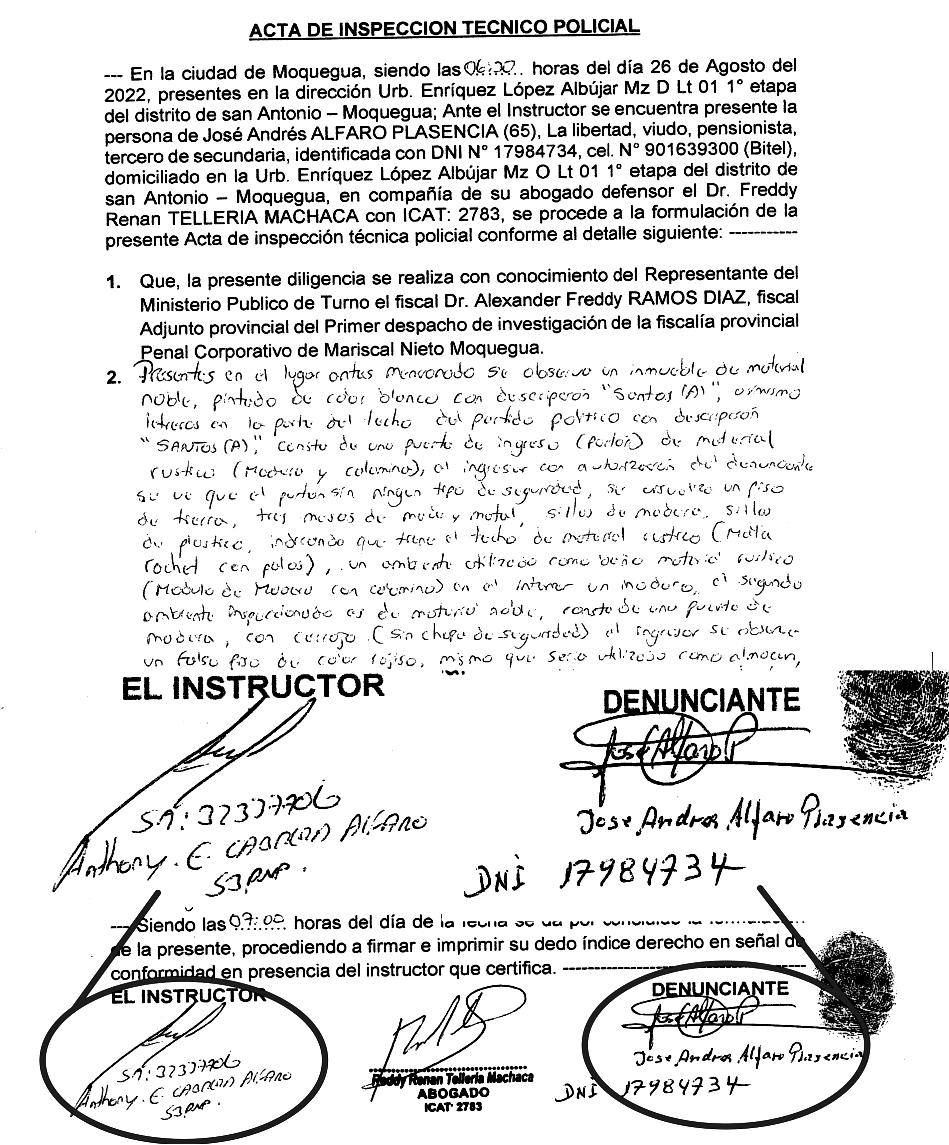 ACTA DE INSPECCION TECNICO POLICIAL
--- En la ciudad de Moquegua, siendo las horas del día 26 de Agosto del
2022, presentes en la dirección Urb. Enríquez López Albújar Mz D Lt 01 1° etapa
del distrito de san Antonio – Moquegua; Ante el Instructor se encuentra presente la
persona de José Andrés ALFARO PLASENCIA (65), La libertad, viudo, pensionista,
tercero de secundaria, identificada con DNI N° 17984734, cel. N° 901639300 (Bitel),
domiciliado en la Urb. Enríquez López Albújar Mz O Lt 01 1° etapa del distrito de
san Antonio – Moquegua, en compañía de su abogado defensor el Dr. Freddy
Renan TELLERIA MACHACA con ICAT: 2783, se procede a la formulación de la
presente Acta de inspección técnica policial conforme al detalle siguiente: -----------
1. Que, la presente diligencia se realiza con conocimiento del Representante del
Ministerio Publico de Turno el fiscal Dr. Alexander Freddy RAMOS DIAZ, fiscal
Adjunto provincial del Primer despacho de investigación de la fiscalía provincial
Penal Corporativo de Mariscal Nieto Moquegua.
2. Presentes en el lugar antes mencionado se observa un inmueble de material
noble, pintado de color blanco con descripción "Santos (A)", asimismo
letreros en la parte del techo del partido politico con descripción
"SANTOS (A)", consta de una puerta de ingreso (Porton) de material
rustico (Madera y calamina), al ingresar con autorización del denunciante
se ve que el porton sin ningun tipo de seguridad, se visualiza un piso
de tierra, tres mesas de made y metal, sillas de madera, sillas
de plastico, indicando que tiene el techo de material rustico (Malla
rachel con palos), un ambiente utilizado como baño material rustico
(Modulo de Madera con calamina) en el interior un inodoro, el segundo
ambiente inspeccionado es de material noble, consta de una puerta de
madera, con cerrojo (Sin chapa de seguridad) al ingresar se observa
un falso piso de color rojiso, mismo que seria utilizado como almacen,
EL INSTRUCTOR
DENUNCIANTE
José Alfaro P
SA: 32377706
Anthony. E. CABRERA ALFARO
S3.PNP.
Jose Andres Alfaro Plasencia
DNI 17984734
--- Siendo las 07:00 horas del día de la fecha se da por concluido la
de la presente, procediendo a firmar e imprimir su dedo índice derecho en señal de
conformidad en presencia del instructor que certifica. ---------------------------
EL INSTRUCTOR
DENUNCIANTE
José Alfaro P
SA: 32377706
Anthony. E. CABRERA ALFARO
S3.PNP.
Freddy Renan Telleria Machaca
ABOGADO
ICAT 2783
Jose Andres Alfaro Plasencia
DNI 17984734